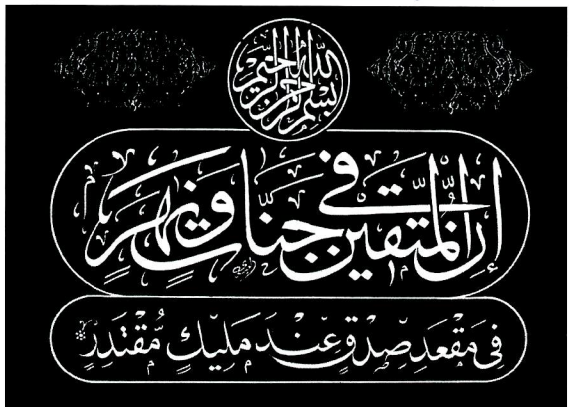 بسم الله الرحمن الرحيم
إِنَّ الْمُتَّقِينَ فِي جَنَّاتٍ وَنَهَرٍ
فِي مَقْعَدِ صِدْقٍ عِنْدَ مَلِيكٍ مُقْتَدِرٍ